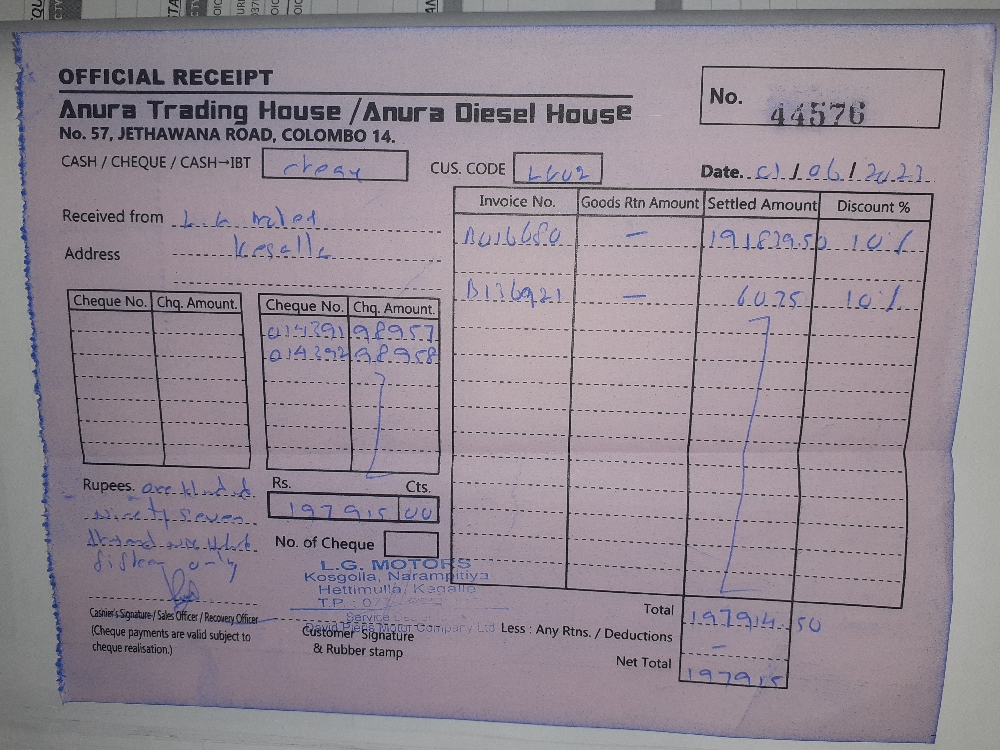 OFFICIAL RECEIPT
Anura Trading House / Anura Diesel House
No. 57, JETHAWANA ROAD, COLOMBO 14.
No. 44576
CASH / CHEQUE / CASH→IBT
CUS. CODE
Date. 01/06/2023
Received from L.G
Address Kegalle
Invoice No. Goods Rtn Amount Settled Amount Discount %
— 191839.50 10%
B136921 — 6075 10%
Cheque No. Chq. Amount. Cheque No. Chq. Amount.
014391 98957
014392 98958
Rupees. one Hundred
ninety seven
Thousand nine Hundred
fifteen only
Rs. Cts.
197915 00
No. of Cheque
L.G. MOTORS
Kosgolla, Narampitiya
Hettimulla, Kegalle
T.P. : 07
Service
Motor Company Ltd
Cashier's Signature / Sales Officer / Recovery Officer
(Cheque payments are valid subject to
cheque realisation.)
Customer Signature
& Rubber stamp
Total 197914.50
Less : Any Rtns. / Deductions —
Net Total 197915